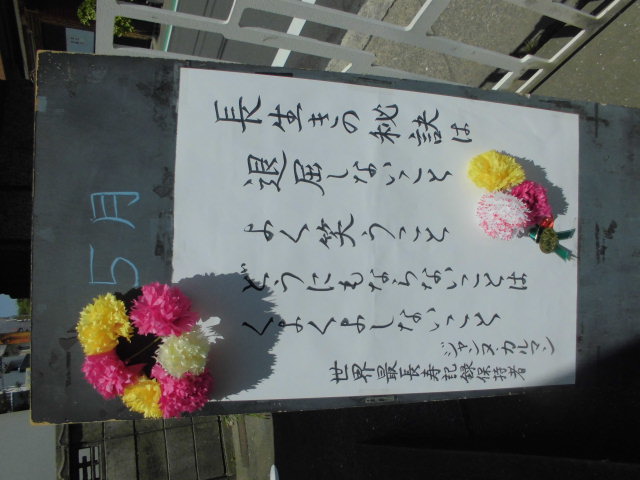 5月
長生きの秘訣は
退屈しないこと
よく笑うこと
どうにもならないことは
くよくよしないこと
ジャンヌ・カルマン
世界最長寿記録保持者